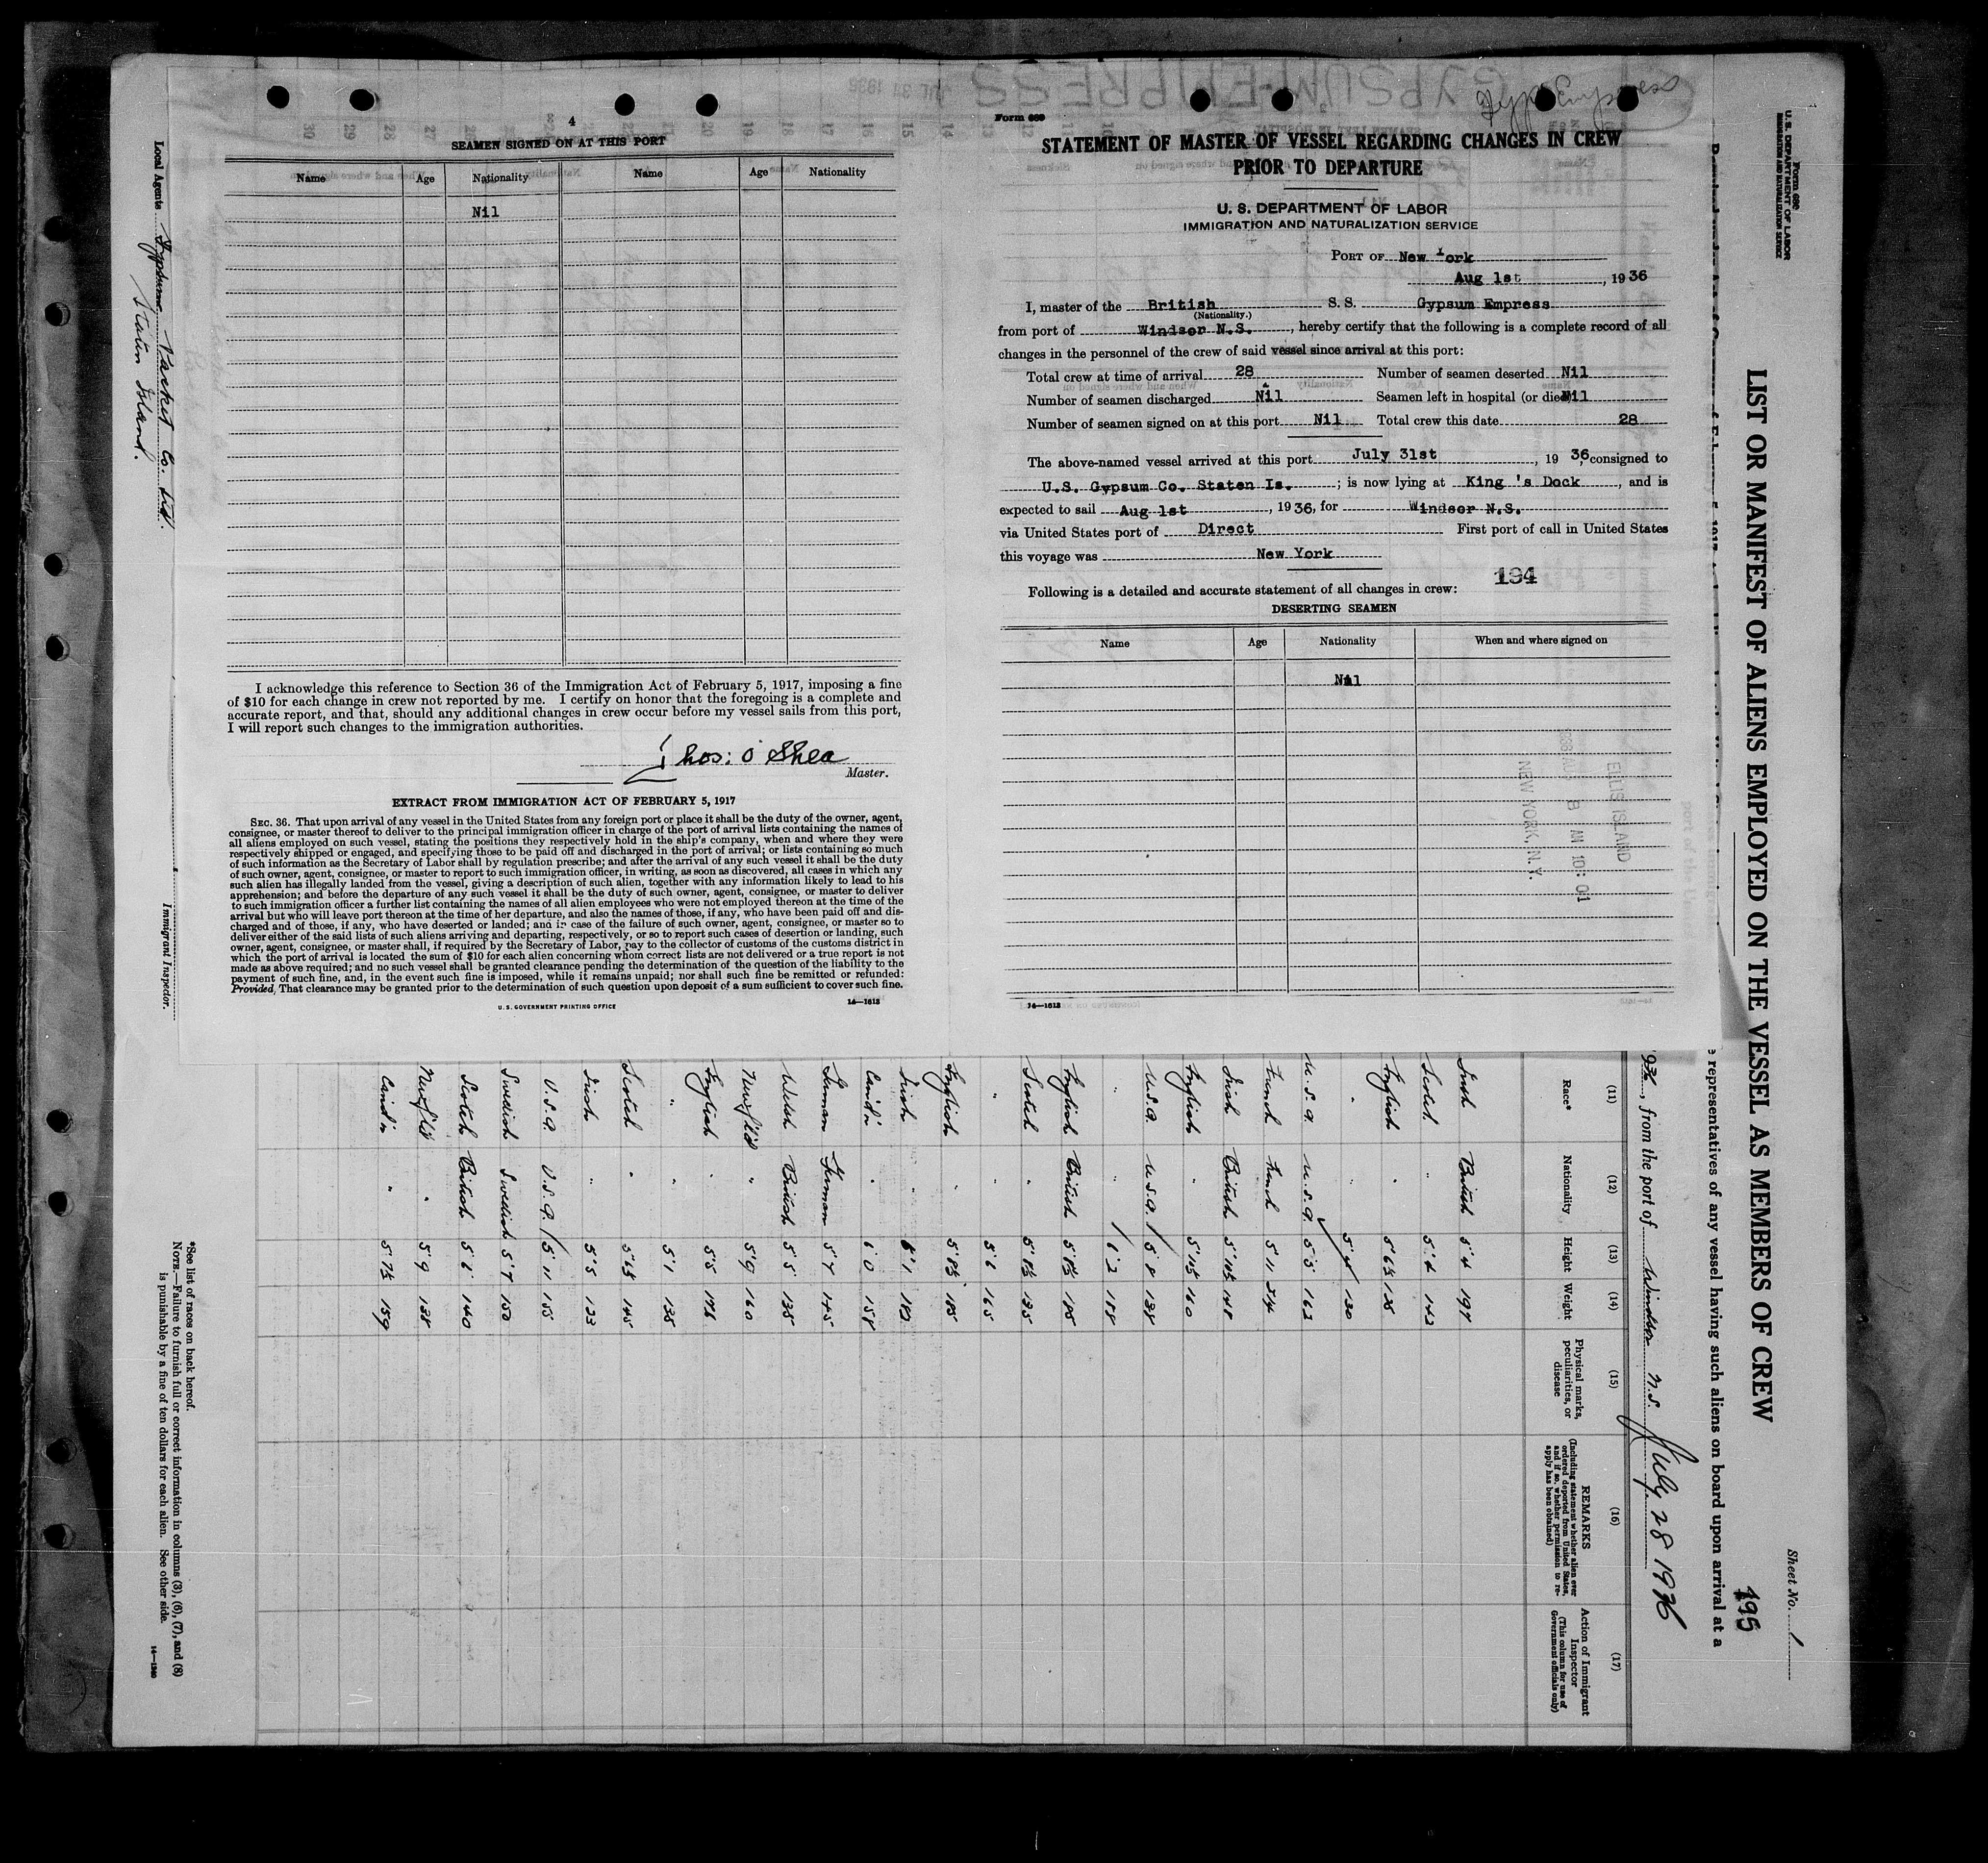 4
SEAMEN SIGNED ON AT THIS PORT
Name Age Nationality Name Age Nationality
Nil
I acknowledge this reference to Section 36 of the Immigration Act of February 5, 1917, imposing a fine
of $10 for each change in crew not reported by me. I certify on honor that the foregoing is a complete and
accurate report, and that, should any additional changes in crew occur before my vessel sails from this port,
I will report such changes to the immigration authorities.
Thos: O'Shea
Master.
EXTRACT FROM IMMIGRATION ACT OF FEBRUARY 5, 1917
SEC. 36. That upon arrival of any vessel in the United States from any foreign port or place it shall be the duty of the owner, agent,
consignee, or master thereof to deliver to the principal immigration officer in charge of the port of arrival lists containing the names of
all aliens employed on such vessel, stating the positions they respectively hold in the ship's company, when and where they were
respectively shipped or engaged, and specifying those to be paid off and discharged in the port of arrival; or lists containing so much
of such information as the Secretary of Labor shall by regulation prescribe; and after the arrival of any such vessel it shall be the duty
of such owner, agent, consignee, or master to report to such immigration officer, in writing, as soon as discovered, all cases in which any
such alien has illegally landed from the vessel, giving a description of such alien, together with any information likely to lead to his
apprehension; and before the departure of any such vessel it shall be the duty of such owner, agent, consignee, or master to deliver
to such immigration officer a further list containing the names of all alien employees who were not employed thereon at the time of the
arrival but who will leave port thereon at the time of her departure, and also the names of those, if any, who have been paid off and dis-
charged and of those, if any, who have deserted or landed; and in case of the failure of such owner, agent, consignee, or master so to
deliver either of the said lists of such aliens arriving and departing, respectively, or so to report such cases of desertion or landing, such
owner, agent, consignee, or master shall, if required by the Secretary of Labor, pay to the collector of customs of the customs district in
which the port of arrival is located the sum of $10 for each alien concerning whom correct lists are not delivered or a true report is not
made as above required; and no such vessel shall be granted clearance pending the determination of the question of the liability to the
payment of such fine, and, in the event such fine is imposed, while it remains unpaid; nor shall such fine be remitted or refunded:
Provided, That clearance may be granted prior to the determination of such question upon deposit of a sum sufficient to cover such fine.
U. S. GOVERNMENT PRINTING OFFICE 14—1613
Form 689
Gyp Empress
STATEMENT OF MASTER OF VESSEL REGARDING CHANGES IN CREW
PRIOR TO DEPARTURE
U. S. DEPARTMENT OF LABOR
IMMIGRATION AND NATURALIZATION SERVICE
PORT OF New York
Aug 1st, 1936
I, master of the British S. S. Gypsum Empress
(Nationality.)
from port of Windsor N.S., hereby certify that the following is a complete record of all
changes in the personnel of the crew of said vessel since arrival at this port:
Total crew at time of arrival 28 Number of seamen deserted Nil
Number of seamen discharged Nil Seamen left in hospital (or died) Nil
Number of seamen signed on at this port Nil Total crew this date 28
The above-named vessel arrived at this port July 31st, 1936, consigned to
U.S. Gypsum Co. Staten Is.; is now lying at King 's Dock, and is
expected to sail Aug 1st, 1936, for Windsor N.S.
via United States port of Direct First port of call in United States
this voyage was New York
194
Following is a detailed and accurate statement of all changes in crew:
DESERTING SEAMEN
Name Age Nationality When and where signed on
Nil
ELLIS ISLAND
AM 10: 01
NEW YORK, N.Y.
14—1613
Form 680
U. S. DEPARTMENT OF LABOR
IMMIGRATION AND NATURALIZATION SERVICE
Sheet No. 1
195
LIST OR MANIFEST OF ALIENS EMPLOYED ON THE VESSEL AS MEMBERS OF CREW
representatives of any vessel having such aliens on board upon arrival at a
936, from the port of Windsor N.S. July 28 1936
(11) (12) (13) (14) (15) (16) (17)
Race* Nationality Height Weight Physical marks, peculiarities, or disease REMARKS (Including statement whether alien ever ordered deported from United States, and if so, whether permission to re-apply has been obtained) Action of Immigrant Inspector (This column for use of Government officials only)
Irish British 5'4 197
Scotch " 5'6 142
English " 5'6½
" " 5'4 130
U.S.A. U.S.A. 5'5 162
French French 5'11 214
Irish British 5'10½ 148
English " 5'10½ 160
U.S.A. U.S.A. 5'8 138
" " 6'2 188
English British 5'8½ 185
Scotch " 5'8½ 135
" " 5'6 165
English " 5'8½ 185
Irish " 6'1 180
Can'd'n " 6'0 158
German German 5'7 145
Welsh British 5'5 135
Newf'l'd " 5'9 160
English " 5'5 176
" " 5'1 135
Scotch " 5'6½ 145
Irish " 5'5 123
U.S.A. U.S.A. 5'11 155
Swedish Swedish 5'7 150
Scotch British 5'6 140
Newf'l'd " 5'9 138
Can'd'n " 5'7½ 159
*See list of races on back hereof.
NOTE.—Failure to furnish full or correct information in columns (3), (6), (7), and (8)
is punishable by a fine of ten dollars for each alien. See other side.
Local Agents Gypsum Packet Co. Ltd.
Staten Island.
Immigrant Inspector.